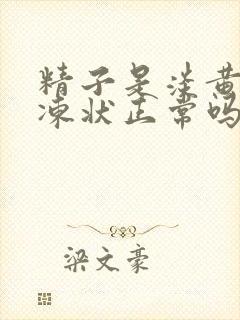 精子是淡黄
冻状正常吗
梁文豪